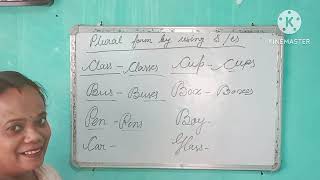 Plural form by using S/es
Class - Classes Cup - Cups
Bus - Buses Box - Boxes
Pen - Pens Boy -
Car - Glass -
KINEMASTER